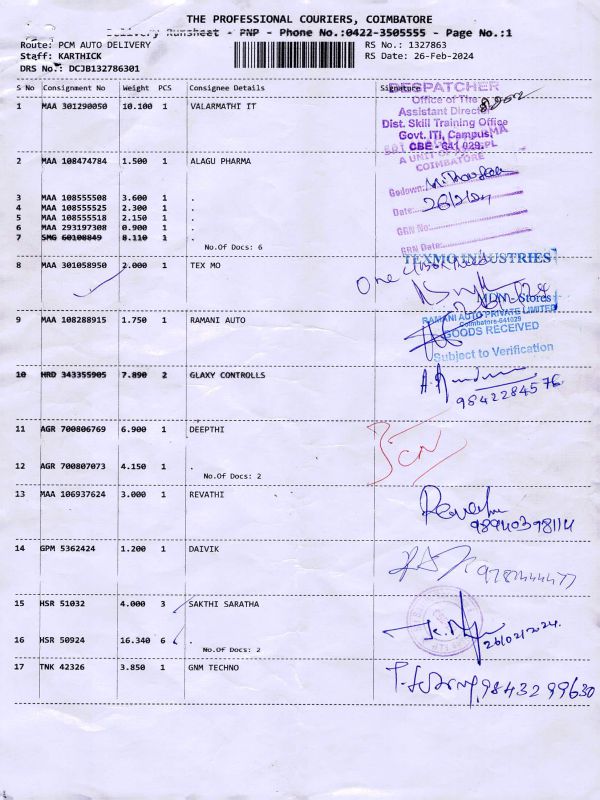 THE PROFESSIONAL COURIERS, COIMBATORE
Delivery Runsheet - PNP - Phone No.:0422-3505555 - Page No.:1
Route: PCM AUTO DELIVERY
RS No.: 1327863
Staff: KARTHICK
RS Date: 26-Feb-2024
DRS No.: DCJB132786301
S No Consignment No Weight PCS Consignee Details Signature
1 MAA 301290050 10.100 1 VALARMATHI IT
DESPATCHER
Office of The
Assistant Director
Dist. Skill Training Office
Govt. ITI, Campus,
CBE - 641 029.
2 MAA 108474784 1.500 1 ALAGU PHARMA
A UNIT OF
COIMBATORE
Godown:
Date: 26/2/24
GRN No:
GRN Date:
3 MAA 108555508 3.600 1 .
4 MAA 108555525 2.300 1 .
5 MAA 108555518 2.150 1 .
6 MAA 293197308 0.900 1 .
7 SMG 60108849 8.110 1 .
No.Of Docs: 6
8 MAA 301058950 2.000 1 TEX MO
TEXMO INDUSTRIES
One
MDM-Stores
9 MAA 108288915 1.750 1 RAMANI AUTO
RAMANI AUTO PRIVATE LIMITED
Coimbatore-641029
GOODS RECEIVED
Subject to Verification
10 HRD 343355905 7.890 2 GLAXY CONTROLLS
9842284576
11 AGR 700806769 6.900 1 DEEPTHI
12 AGR 700807073 4.150 1 .
No.Of Docs: 2
13 MAA 106937624 3.000 1 REVATHI
Revathi
98940398114
14 GPM 5362424 1.200 1 DAIVIK
15 HSR 51032 4.000 3 SAKTHI SARATHA
16 HSR 50924 16.340 6 .
No.Of Docs: 2
26/02/2024.
17 TNK 42326 3.850 1 GNM TECHNO
9843299630